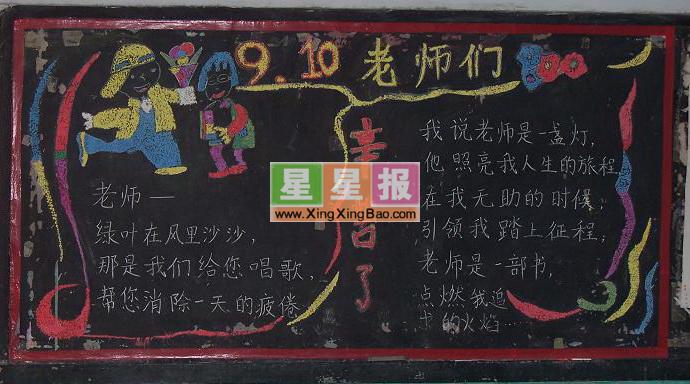 9.10 老师们
辛苦了
老师—
绿叶在风里沙沙,
那是我们给您唱歌,
帮您消除一天的疲倦
我说老师是一盏灯,
他照亮我人生的旅程
在我无助的时候;
引领我踏上征程;
老师是一部书,
点燃我追
求的火焰……
星星报
www.XingXingBao.com